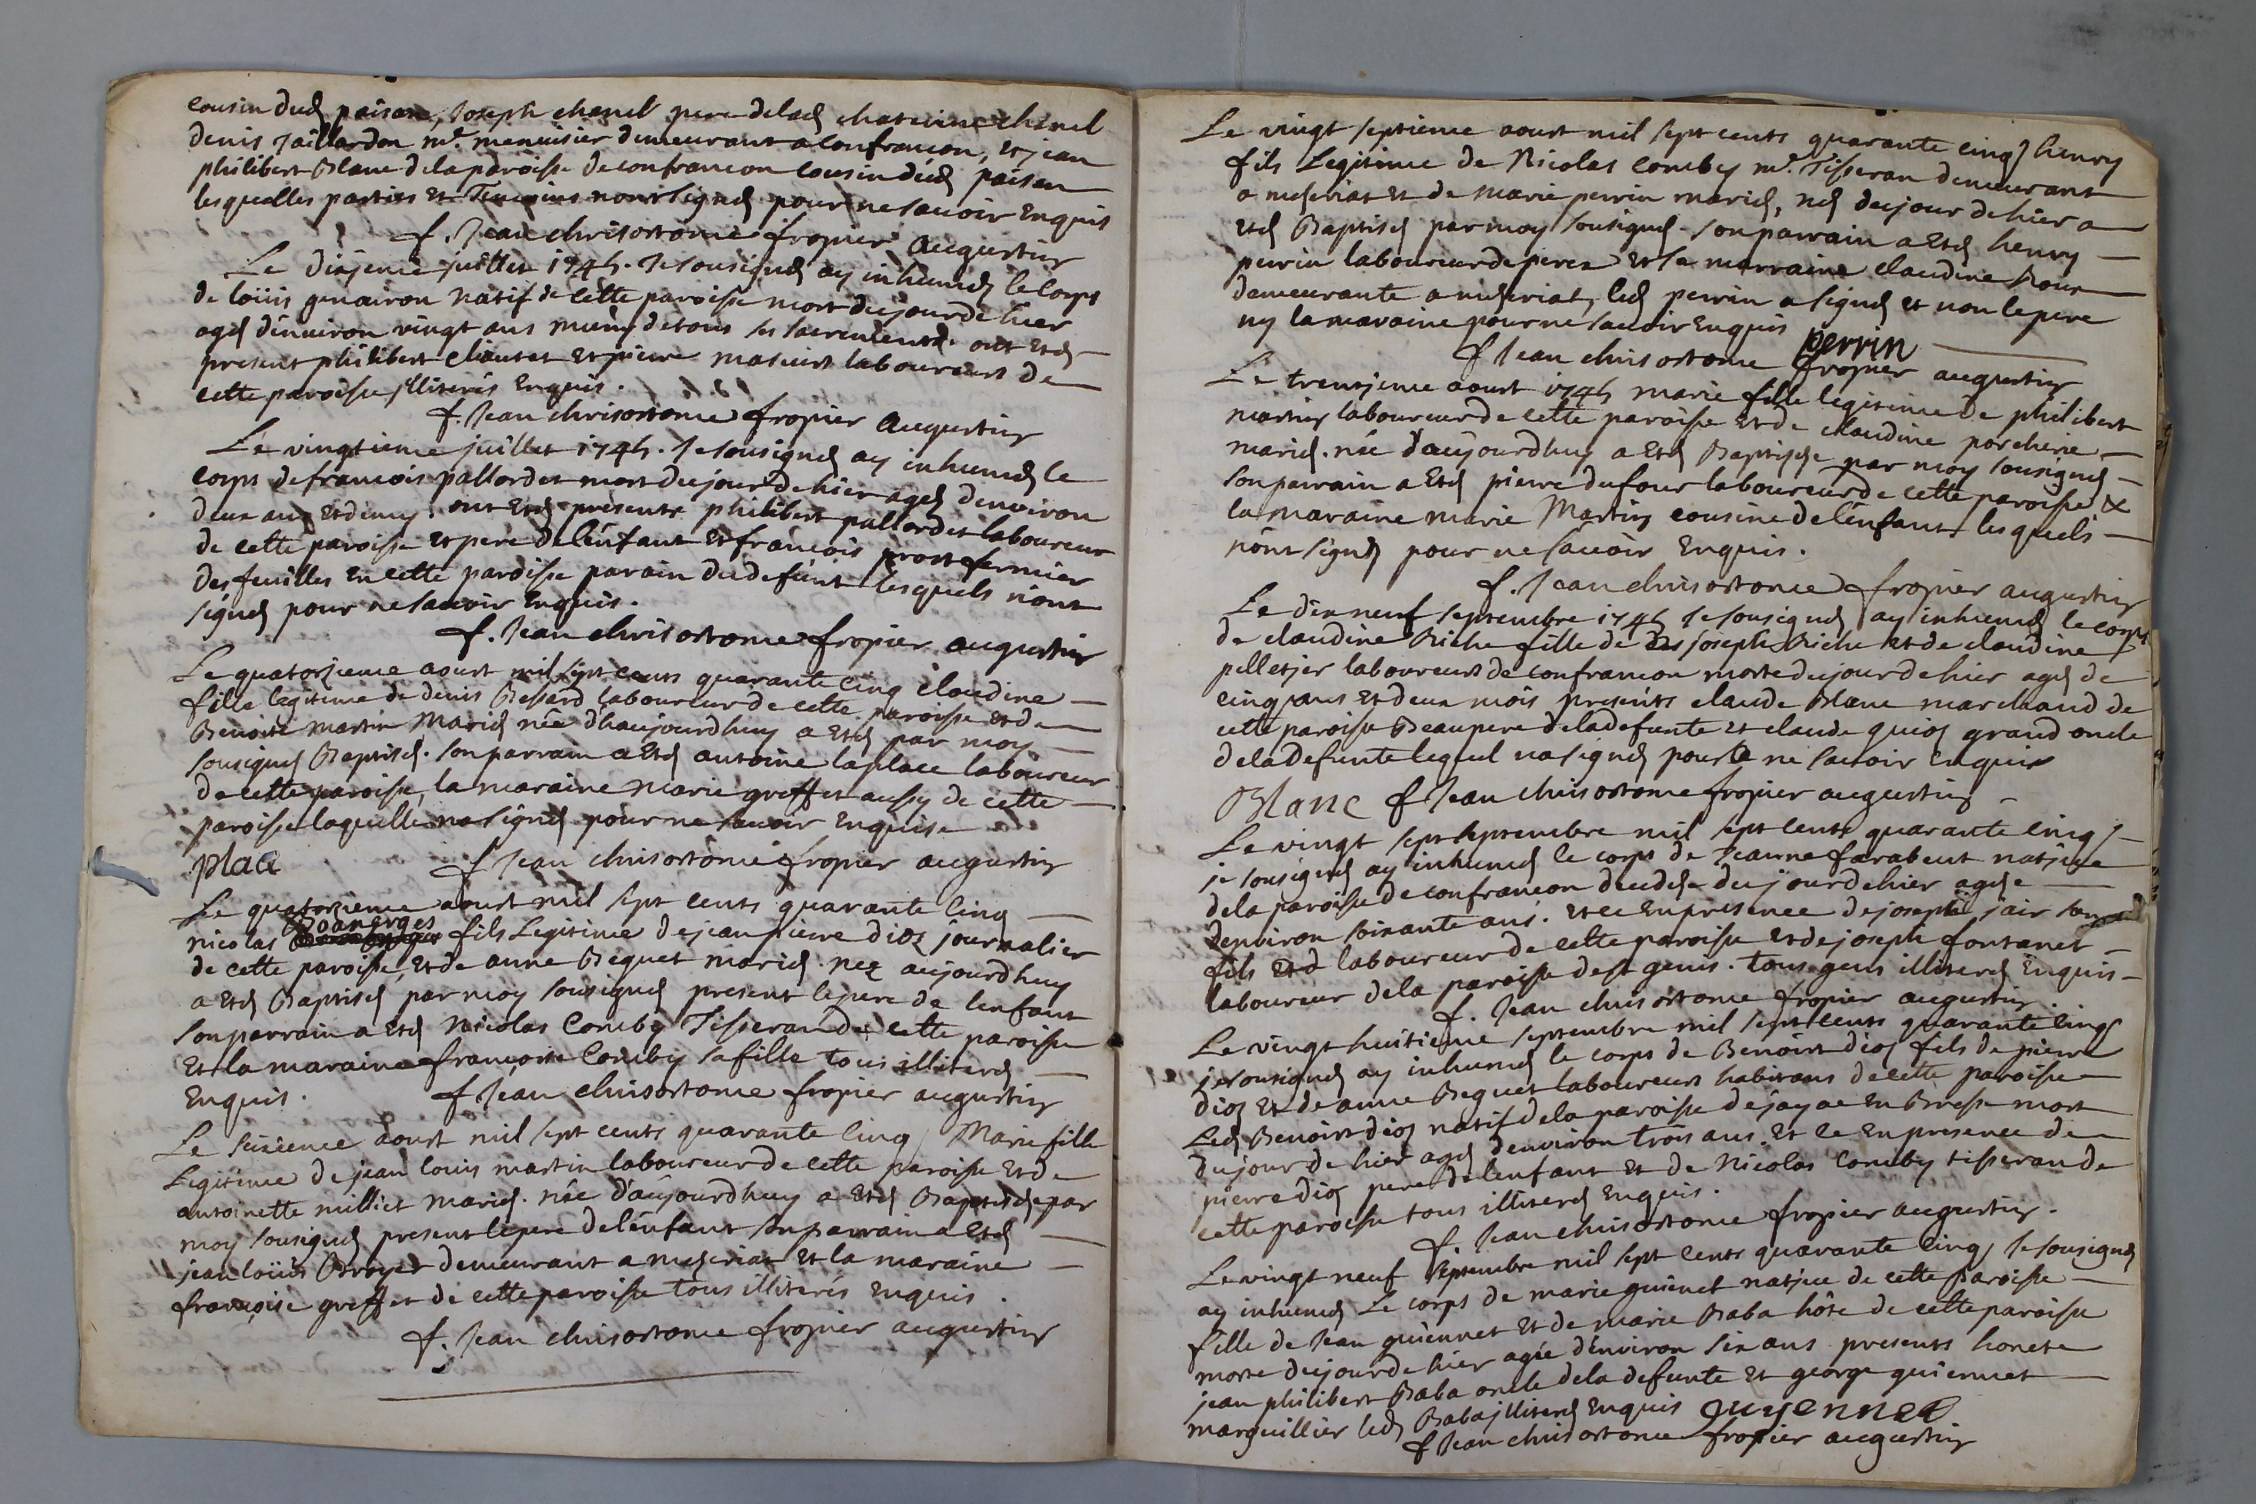 cousin dud paisan, Joseph chanel pere de lad chaterine chanel
denis Jaillardon me. menuisier demeurant a confrancon, et jean
philibert Blanc de la paroisse de confrancon cousin dud paisan
lesquelles parties et Temoins n'ont signé pour ne savoir Enquis
f. Jean chrisostome fropier augustin
Le dixjeme juillet 1745. Je sousigné ay inhumé le corps
de loüis genairon natif de cette paroisse mort du jour de hier
agé d'environ vingt ans muny de tous ses sacrements. ont eté
present philibert chantet et pierre laboureurs de
cette paroisse jlliterés Enquis.
f. Jean chrisostome fropier augustin
Le vingtieme juillet 1745. Je sousigné ay inhumé le
corps de francois pallordet mort du jour de hier agé d'environ
deux ans et demy. ont eté presents philibert pallordet laboureur
de cette paroisse et pere de l'enfant et francois prost fermier
des feuilles en cette paroisse parain du defunt lesquels n'ont
signé pour ne savoir Enquis.
f. Jean chrisostome fropier augustin
Le quatorzieme aoust mil sept cents quarante cinq claudine
fille legitime de denis Bessard laboureur de cette paroisse et de
Benoite martin Marié née d'haujourdhuy a eté par moy
sousigné Baptisé. son parrain a eté antoine laplace laboureur
de cette paroisse, la maraine Marie greffet aussy de cette
paroisse laquelle na signé pour ne savoir Enquise
plaa f Jean chrisostome fropier augustin
Le quatorzieme aoust mil sept cents quarante cinq
Boanerges
nicolas fils Legitime de jean pierre dioz journalier
de cette paroisse, et de anne Beguet marié. nez aujourdhuy
a eté Baptisé par moy sousigné present le pere de lenfant
son parrain a eté Nicolas Comby Tisseran de cette paroisse
et la maraine francoise Comby sa fille tous illiteré
Enquis. f Jean chrisostome fropier augustin
Le seizieme aoust mil sept cents quarante cinq Marie fille
Legitime de jean louis martin laboureur de cette paroisse et de
antoinette milliet marié. née d'aujourdhuy a eté Baptisée par
moy sousigné present le pere de l'enfant son parrain a eté
jean loüis Broyer demeurant a meseriat et la maraine
françoise greffet de cette paroisse tous illiterés Enquis.
f. Jean chrisostome fropier augustin
Le vingt septieme aoust mil sept cents quarante cinq henry
fils Legitime de Nicolas comby me. Tisseran demeurant
a meseriat et de marie perrin marié, né du jour de hier a
eté Baptisé par moy sousigné. son parrain a eté henry
perrin laboureur de perex et la marraine claudine
demeurante a meseriat, led perrin a signé et non le pere
ny la maraine pour ne savoir Enquis perrin
f Jean chrisostome fropier augustin
Le trentjeme aoust 1745 marie fille legitime de philibert
martin laboureur de cette paroisse et de claudine porcherie
marié. née d'aujourdhuy a eté Baptisée par moy sousigné
son parrain a eté pierre dufour laboureur de cette paroisse &
la maraine marie Martin cousine de l'enfant lesquels
n'ont signé pour ne savoir Enquis.
f. Jean chrisostome fropier augustin
Le dix neuf septembre 1745 Je sousigné ay inhumé le corps
de claudine Riche fille de joseph Riche et de claudine
pelletjer laboureurs de confrancon morte du jour de hier agé de
cinq ans et deux mois presents claude Blanc marchand de
cette paroisse Beaupere de la defunte et claude guioz grand oncle
de la Defunte lequel na signé pour ne savoir Enquis
Blanc f Jean chrisostome fropier augustin
Le vingt sept septembre mil sept cents quarante cinq
je sousigné ay inhumé le corps de Jeanne farabeut natjve
de la paroisse de confrancon decedée du jour de hier agée
d'environ soixante ans. et ce en presence de joseph jair son
fils laboureur de cette paroisse et de joseph fontanet
laboureur de la paroisse de st genis. tous gens illiteré Enquis
f. Jean chrisostome fropier augustin
Le vingt huitieme septembre mil sept cents quarante cinq
je sousigné ay inhumé le corps de Benoist dioz fils de pierre
dioz et de anne Beguet laboureurs habitans de cette paroisse
Led Benoist dioz natif de la paroisse de jayac en Bresse mort
du jour de hier agé d'environ trois ans. et ce en presence de
pierre dioz pere de lenfant et de Nicolas comby tisseran de
cette paroisse tous illiteré Enquis.
f. Jean chrisostome fropier augustin.
Le vingt neuf septembre mil sept cents quarante cinq Je sousigné
ay inhumé Le corps de marie guienet natjve de cette paroisse
fille de Jean guiennet et de marie Baba hôte de cette paroisse
morte du jour de hier agée d'environ six ans presents honete
jean philibert Baba oncle de la defunte et george guiennet
marguillier led Baba jlliteré Enquis guyennet
f Jean chrisostome fropier augustin